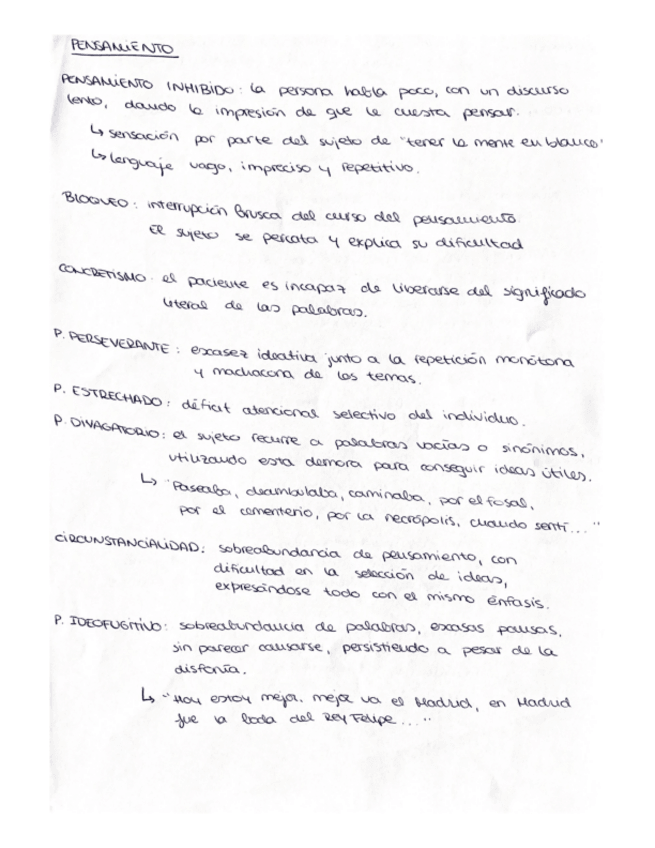 PENSAMIENTO
PENSAMIENTO INHIBIDO: la persona habla poco, con un discurso
lento, dando la impresión de que le cuesta pensar.
↳ sensación por parte del sujeto de "tener la mente en blanco"
↳ lenguaje vago, impreciso y repetitivo.
BLOQUEO: interrupción brusca del curso del pensamiento
El sujeto se percata y explica su dificultad
CONCRETISMO: el paciente es incapaz de liberarse del significado
literal de las palabras.
P. PERSEVERANTE: escasez ideativa junto a la repetición monótona
y machacona de los temas.
P. ESTRECHADO: déficit atencional selectivo del individuo.
P. DIVAGATORIO: el sujeto recurre a palabras vacías o sinónimos,
utilizando esta demora para conseguir ideas útiles.
↳ "Paseaba, deambulaba, caminaba, por el fosal,
por el cementerio, por la necrópolis, cuando sentí..."
CIRCUNSTANCIALIDAD: sobreabundancia de pensamiento, con
dificultad en la selección de ideas,
expresándose todo con el mismo énfasis.
P. IDEOFUGITIVO: sobreabundancia de palabras, escasas pausas,
sin parecer cansarse, persistiendo a pesar de la
disfonía.
↳ "Hoy estoy mejor. mejor va el Madrid, en Madrid
fue la boda del Rey Felipe..."